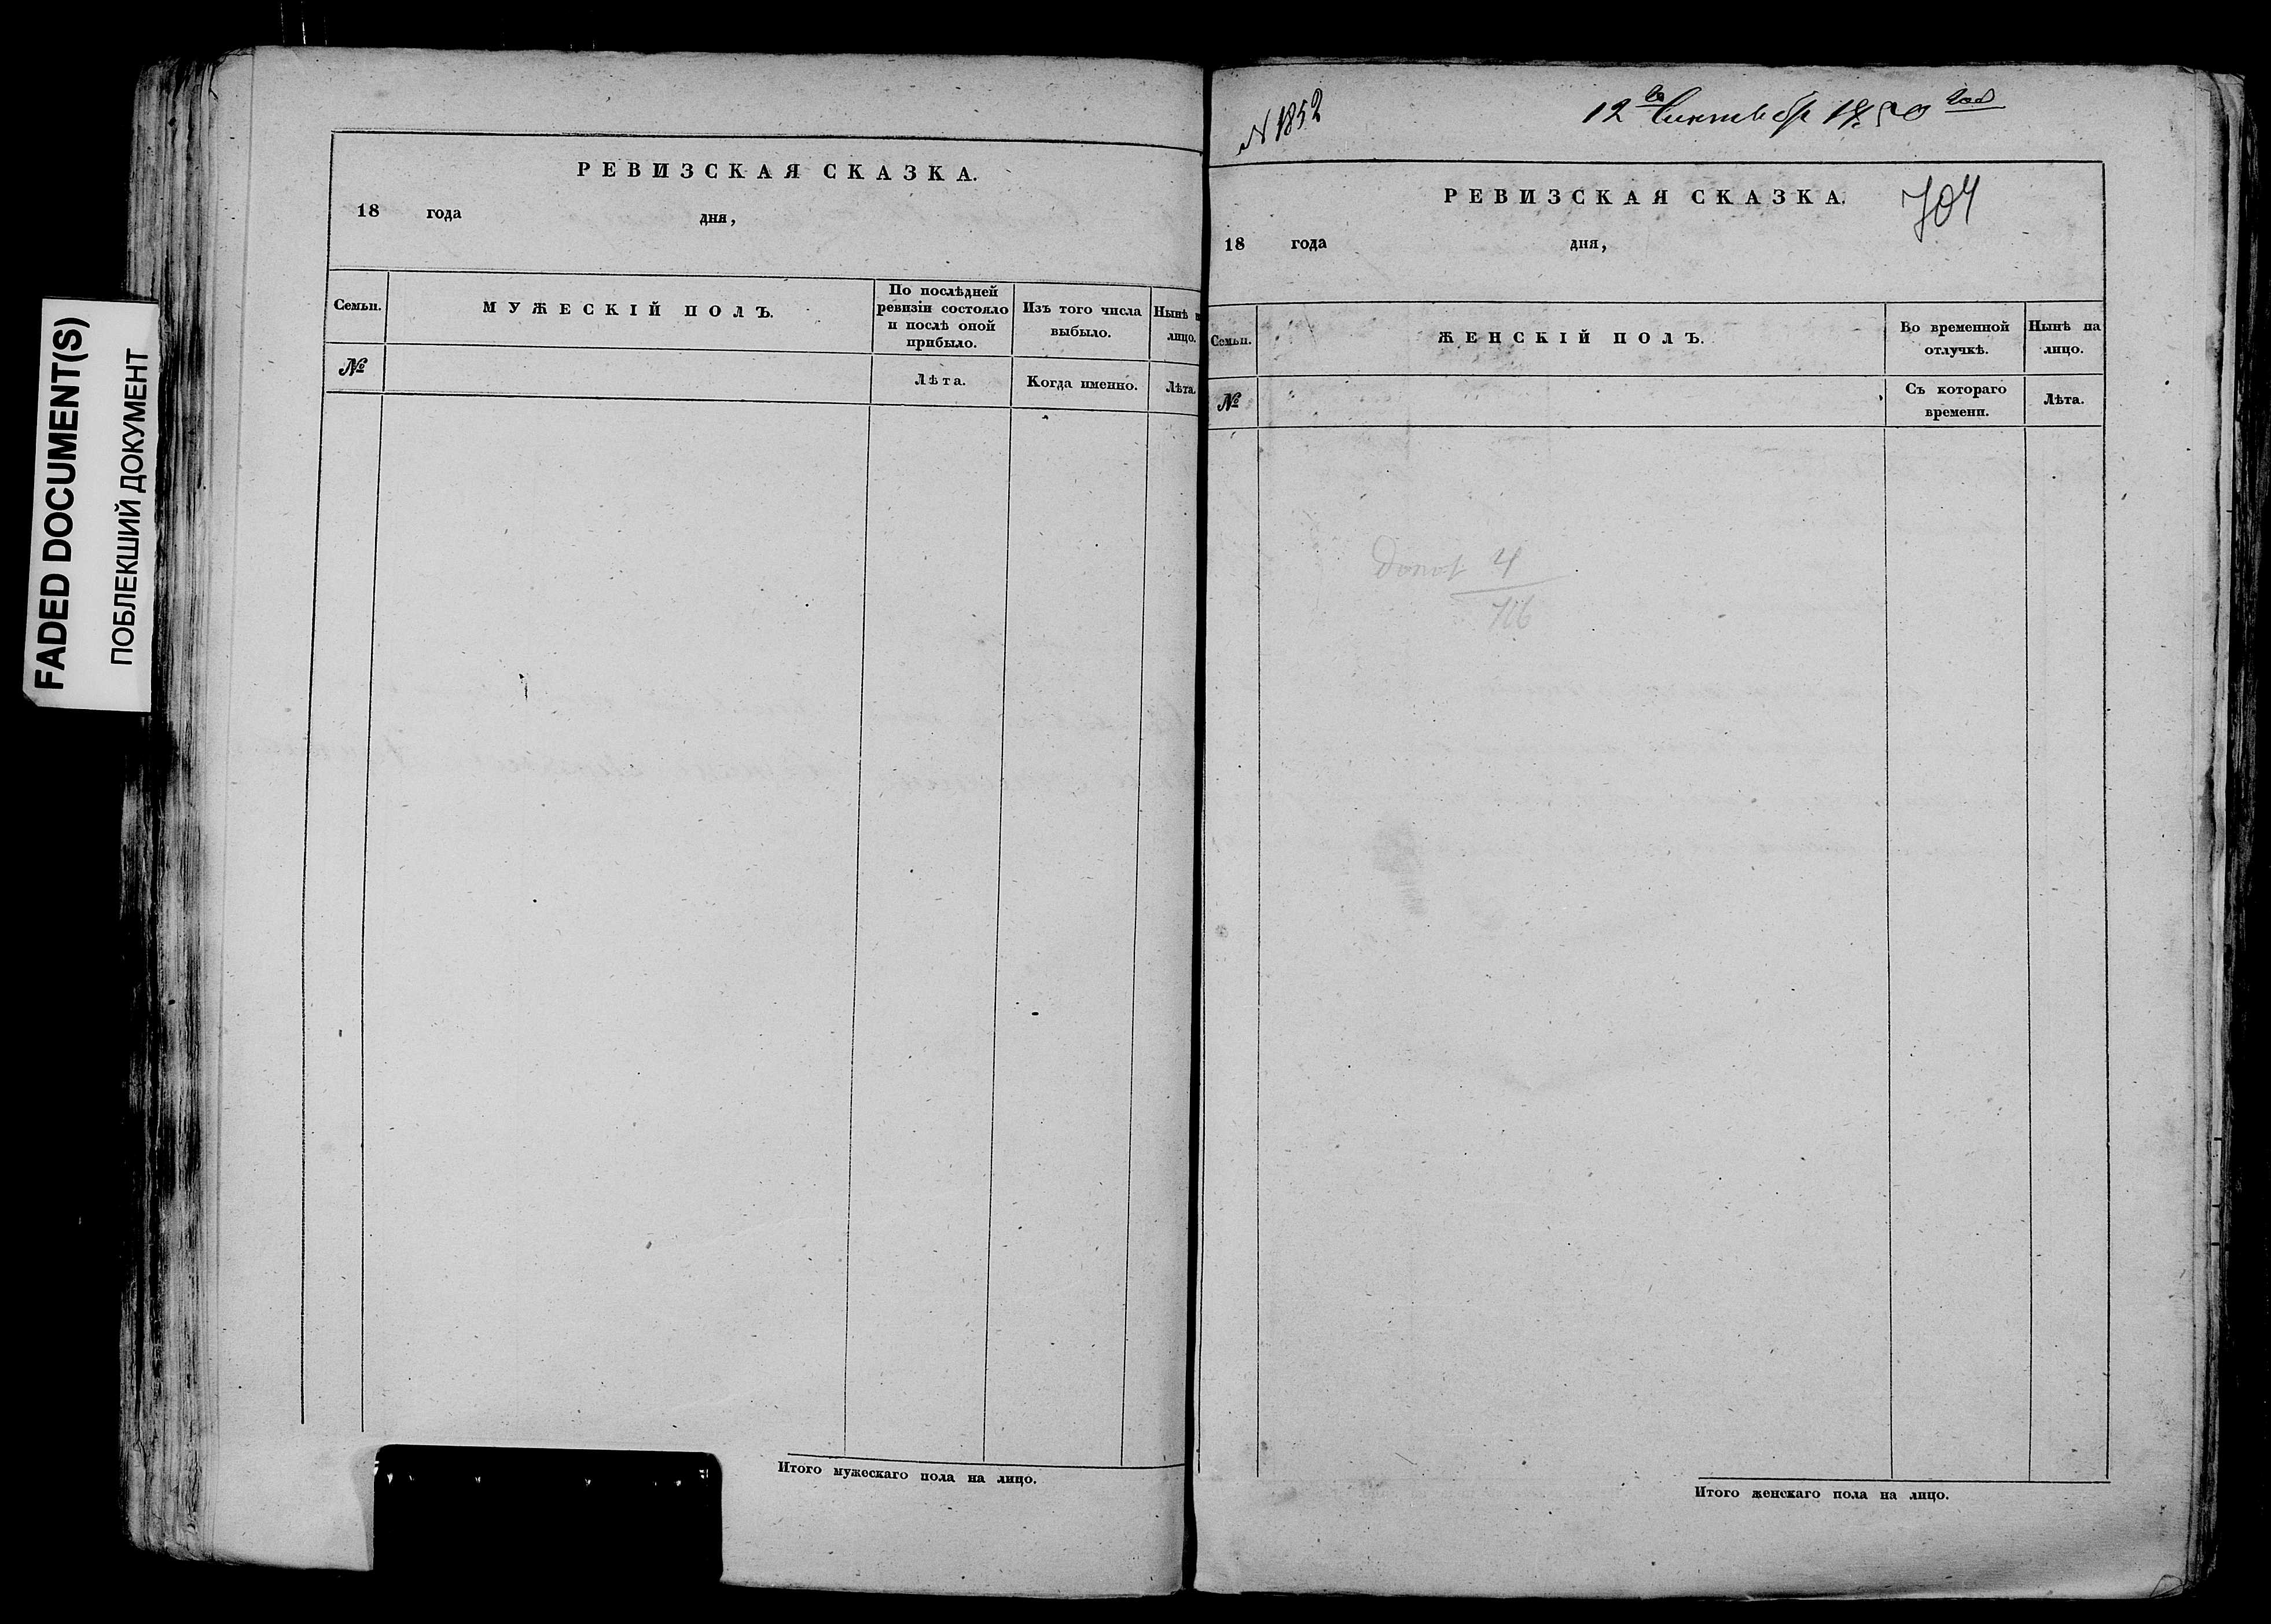 FADED DOCUMENT(S)
ПОБЛЕКШИЙ ДОКУМЕНТ
РЕВИЗСКАЯ СКАЗКА.
18 года дня,
Семьи. МУЖЕСКІЙ ПОЛЪ. По послѣдней ревизіи состояло и послѣ оной прибыло. Изъ того числа выбыло. Нынѣ н лицо.
№ Лѣта. Когда именно. Лѣта.
Итого мужескаго пола на лицо.
N 1852
12 Сентября 1850 года
РЕВИЗСКАЯ СКАЗКА.
704
18 года дня,
Семьи. ЖЕНСКІЙ ПОЛЪ. Во временной отлучкѣ. Нынѣ на лицо.
№ Съ котораго времени. Лѣта.
4
Итого женскаго пола на лицо.